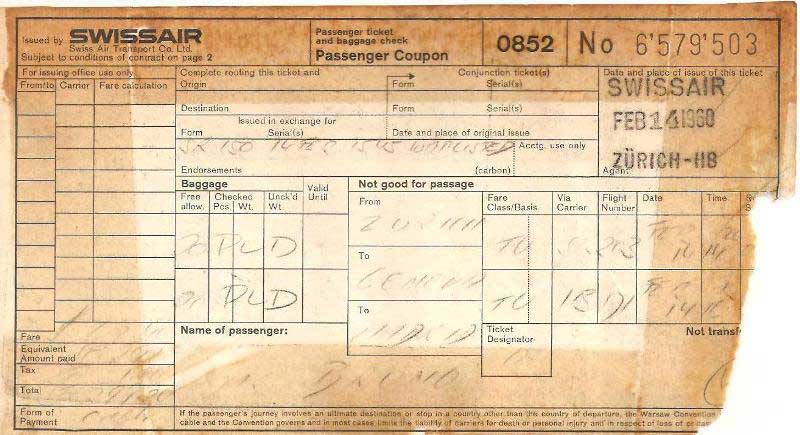 Issued by SWISSAIR
Swiss Air Transport Co. Ltd.
Subject to conditions of contract on page 2
Passenger ticket
and baggage check
Passenger Coupon
0852
No 6'579'503
For issuing office use only
From/to Carrier Fare calculation
Complete routing this ticket and Conjunction ticket(s)
Origin Form Serial(s)
Destination Form Serial(s)
Issued in exchange for
Form Serial(s) Date and place of original issue
Date and place of issue of this ticket
SWISSAIR
FEB 14 1960
ZÜRICH-HB
Agent
SR 150 14 FEB 1545 WAITLISTED
Acctg. use only
Endorsements (carbon)
Baggage
Free allow. Checked Pcs. Wt. Unck'd Wt. Valid Until
Not good for passage
From
Fare Class/Basis Via Carrier Flight Number Date Time
ZURICH
20 PLD
TU
To
GENEVA
PLD
TU
To
MADRID
Fare
Equivalent
Amount paid
Tax
Total
Form of
Payment
Name of passenger:
Ticket
Designator
Not transf
If the passenger's journey involves an ultimate destination or stop in a country other than the country of departure, the Warsaw Convention
cable and the Convention governs and in most cases limits the liability of carriers for death or personal injury and in respect of loss of or